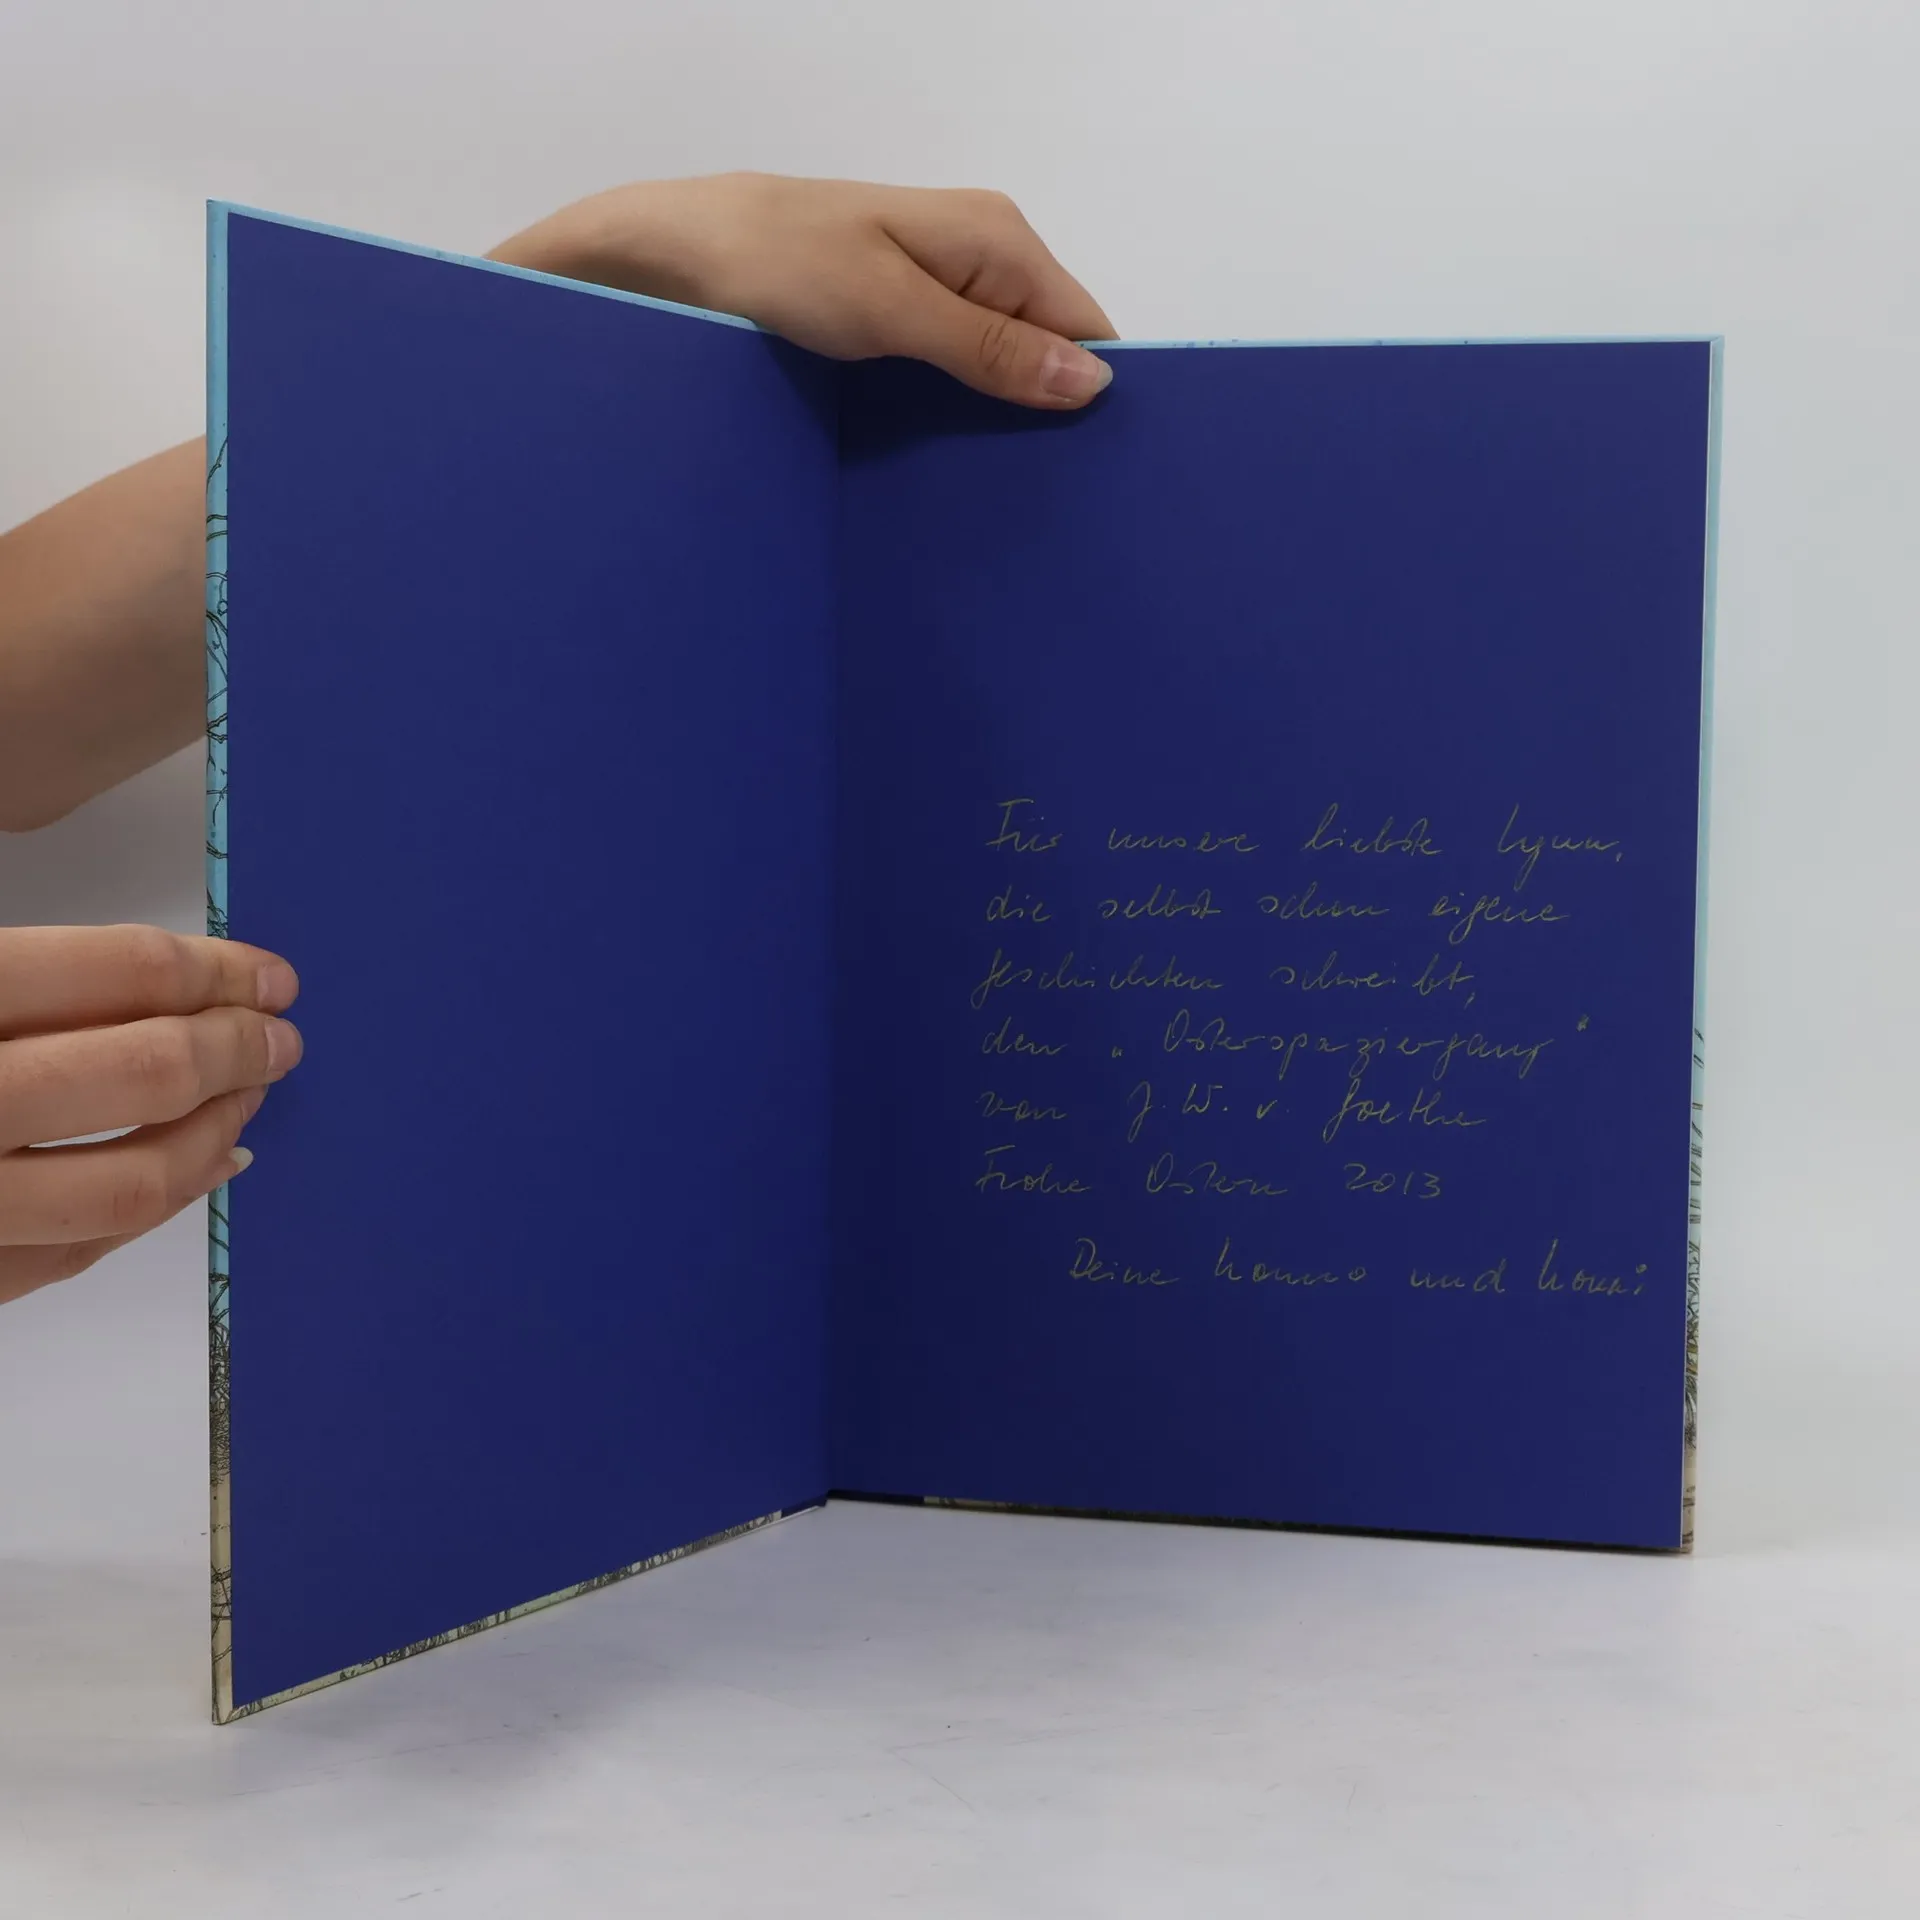 Für unsere liebste Lynn,
die selbst schon eigene
Geschichten schreibt,
den „Osterspaziergang“
von J. W. v. Goethe
Frohe Ostern 2013
Deine und